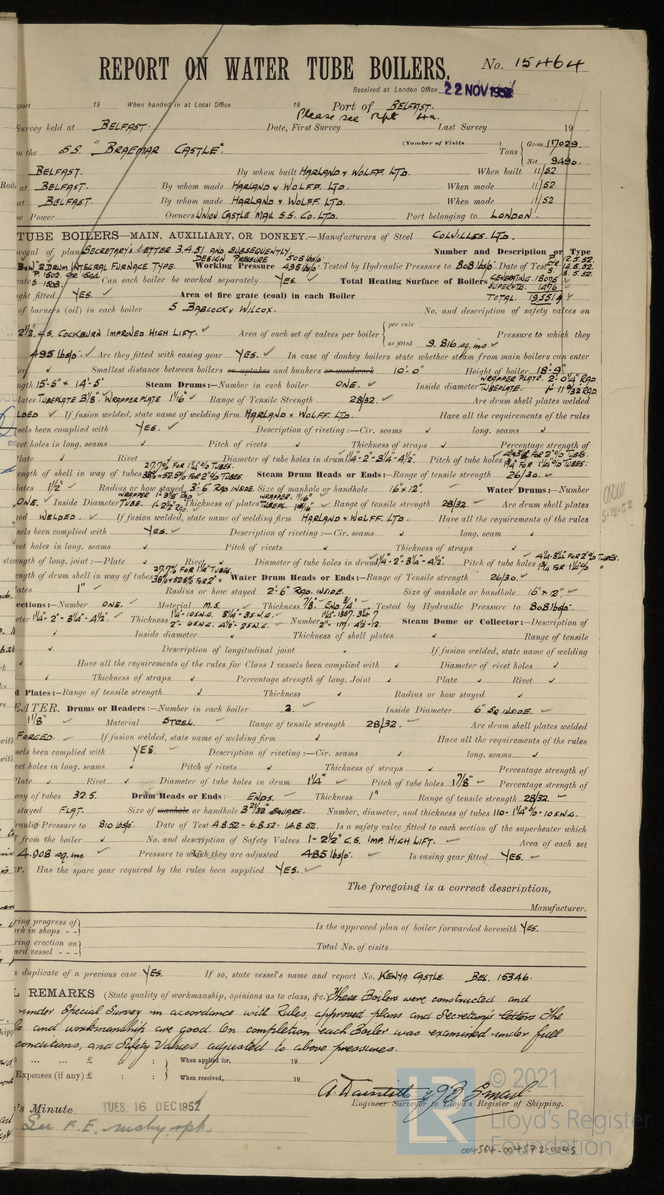 REPORT ON WATER TUBE BOILERS. No. 15464
Received at London Office 22 NOV 1952
port 19 When handed in at Local Office 19 Port of BELFAST.
Please see Rpt 4a.
Survey held at BELFAST. Date, First Survey Last Survey 19
(Number of Visits
on the S.S. "BRAEMAR CASTLE". Tons Gross 17029 Net 9490
BELFAST. By whom built HARLAND & WOLFF. LTD. When built 11/52
at BELFAST. By whom made HARLAND & WOLFF. LTD. When made 11/52
at BELFAST By whom made HARLAND & WOLFF. LTD. When made 11/52
Power Owners UNION CASTLE MAIL S.S. CO. LTD. Port belonging to LONDON.
TUBE BOILERS—MAIN, AUXILIARY, OR DONKEY.—Manufacturers of Steel COLVILLES. LTD.
roval of plan SECRETARY'S LETTER 3.4.51 AND SUBSEQUENTLY. Number and Description or Type
DESIGN PRESSURE 505 lbs/□"
2 DRUM INTEGRAL FURNACE TYPE. Working Pressure 495 lbs/□" Tested by Hydraulic Pressure to 808 lbs/□" Date of Test
Can each boiler be worked separately YES. Total Heating Surface of Boilers GENERATING 18075
SUPERHTG. 1476
ght fitted YES. Area of fire grate (coal) in each Boiler TOTAL. 19551
of burners (oil) in each boiler 5 BABCOCK & WILCOX. No. and description of safety valves on
2½" C.S. COCKBURN IMPROVED HIGH LIFT. Area of each set of valves per boiler per rule as fitted 9.816 sq.ins Pressure to which they
495 lbs/□" Are they fitted with easing gear YES. In case of donkey boilers state whether steam from main boilers can enter
Smallest distance between boilers or uptakes and bunkers or woodwork 10'-0" Height of boiler 18'-9"
ngth 15'-5" & 14'-5" Steam Drums:—Number in each boiler ONE. Inside diameter WRAPPER PLATE. 2'-0¼" RAD. TUBEPLATE. 1'-11 9/32 RAD.
lates TUBEPLATE 3⅛" WRAPPER PLATE 1⅛" Range of Tensile Strength 28/32. Are drum shell plates welded
LDED If fusion welded, state name of welding firm HARLAND & WOLFF. LTD. Have all the requirements of the rules
sels been complied with YES. Description of riveting:—Cir. seams long. seams
vet holes in long. seams Pitch of rivets Thickness of straps Percentage strength of
Plate Rivet Diameter of tube holes in drum 1¼"-2"-3¼"-4½". Pitch of tube holes
ength of shell in way of tubes 27.7% FOR 1¼" TUBES. Steam Drum Heads or Ends:—Range of tensile strength 26/30.
lates 1½" Radius or how stayed 3'-6" RAD INSIDE. Size of manhole or handhole 16"x12". Water Drums:—Number
ONE. Inside Diameter Thickness of plates Range of tensile strength 28/32. Are drum shell plates
ed WELDED. If fusion welded, state name of welding firm HARLAND & WOLFF. LTD. Have all the requirements of the rules
sels been complied with YES. Description of riveting:—Cir. seams long. seam
vet holes in long. seams Pitch of rivets Thickness of straps
strength of long. joint:—Plate Rivet Diameter of tube holes in drum 1¼"-2"-3¼"-4½". Pitch of tube holes
ength of drum shell in way of tubes 27.7% FOR 1¼" TUBES. Water Drum Heads or Ends:—Range of Tensile strength 26/30.
lates 1" Radius or how stayed 2'-6" RAD. INSIDE. Size of manhole or handhole 16"x12"
ections:—Number ONE. Material M.S. Thickness Tested by Hydraulic Pressure to 808 lbs/□".
ter 1¼"-2"-3¼"-4½". Thickness Number Steam Dome or Collector:—Description of
Inside diameter Thickness of shell plates Range of tensile
Description of longitudinal joint If fusion welded, state name of welding
Have all the requirements of the rules for Class I vessels been complied with Diameter of rivet holes
Thickness of straps Percentage strength of long. Joint Plate Rivet
d Plates:—Range of tensile strength Thickness Radius or how stayed
EATER. Drums or Headers:—Number in each boiler 2. Inside Diameter 6" SQ INSIDE.
1⅛" Material STEEL. Range of tensile strength 28/32. Are drum shell plates welded
FORGED. If fusion welded, state name of welding firm Have all the requirements of the rules
sels been complied with YES. Description of riveting:—Cir. seams long. seams
vet holes in long. seams Pitch of rivets Thickness of straps Percentage strength of
Plate Rivet Diameter of tube holes in drum 1¼" Pitch of tube holes 1⅞" Percentage strength of
way of tubes 32.5. Drum Heads or Ends: ENDS. Thickness 1" Range of tensile strength 28/32.
stayed FLAT. Size of manhole or handhole 3 21/32" SQUARE. Number, diameter, and thickness of tubes 110-1¼" O/D-10 S.N.G.
raulic Pressure to 810 lbs/□". Date of Test 4.8.52 - 6.8.52. 14.8.52. Is a safety valve fitted to each section of the superheater which
from the boiler No. and description of Safety Valves 1-2½" C.S. IMP. HIGH LIFT. Area of each set
4.908 sq.ins Pressure to which they are adjusted 485 lbs/□" Is easing gear fitted YES.
Has the spare gear required by the rules been supplied YES.
The foregoing is a correct description,
Manufacturer.
ring progress of
rk in shops Is the approved plan of boiler forwarded herewith YES.
ring erection on
ard vessel Total No. of visits
duplicate of a previous case YES. If so, state vessel's name and report No. KENYA CASTLE. BEL. 15346.
L REMARKS (State quality of workmanship, opinions as to class, &c. These Boilers were constructed and
under Special Survey in accordance with Rules, approved plans and Secretary's letters The
and workmanship are good. On completion each Boiler was examined under full
conditions, and Safety Valves adjusted to above pressures.
£ : : When applied for, 19
Expenses (if any) £ : : When received, 19
Engineer Surveyor to Lloyd's Register of Shipping.
's Minute TUES. 16 DEC 1952
See F.E. mchy. rpt.
© 2021
Lloyd's Register
Foundation
004564-004572-0245